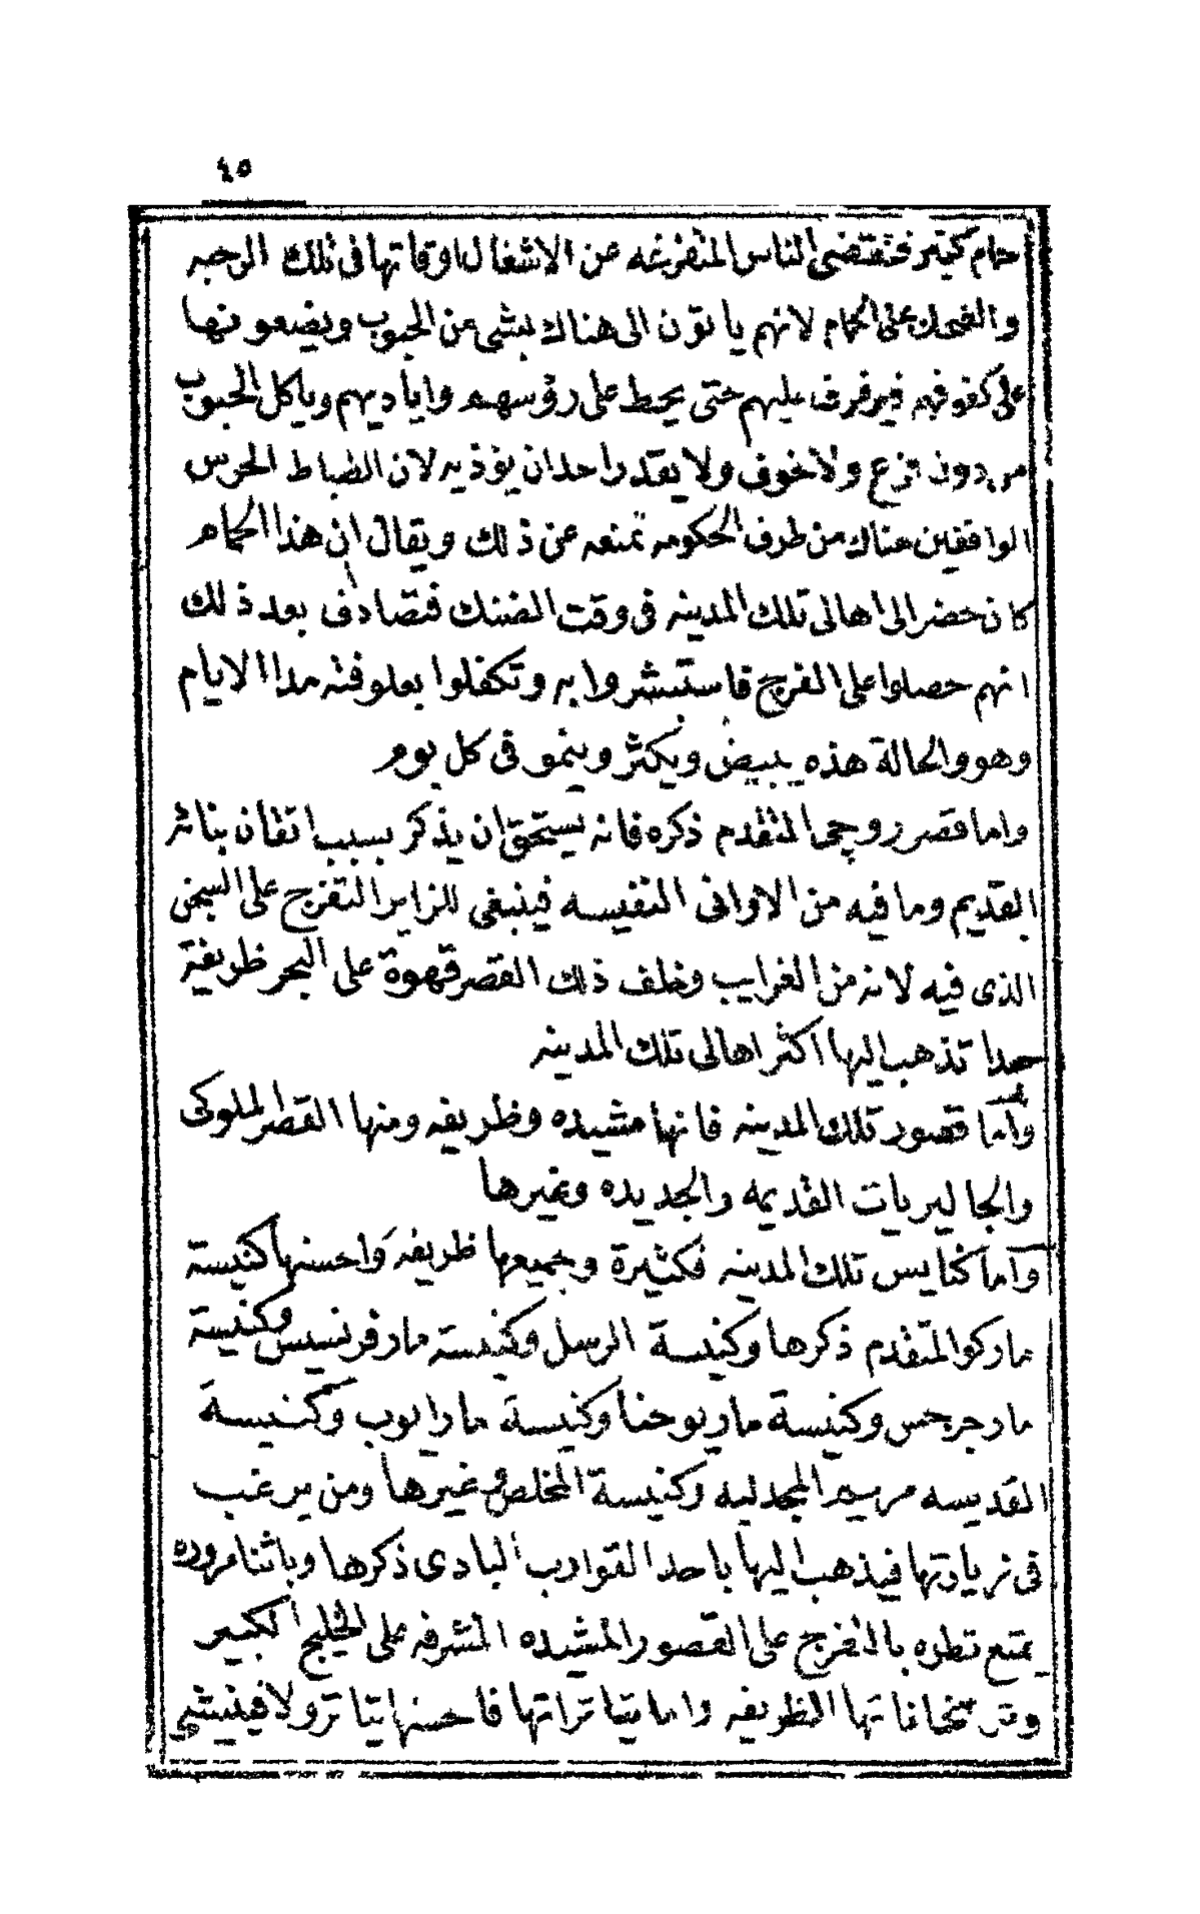 ٤٥
حمام كثير فتقتضى الناس المتفرغه عن الاشغال اوقاتها فى تلك الرحبه
والضحك على الحمام لانهم ياتون الى هناك بشى عن الحبوب ويضعونها
على كفوفهم فيرفرف عليهم حتى يحيط على رؤسهم واياديهم وياكل الحبوب
من دون فزع ولا خوف ولا يقدر احد ان يؤذيه لان الظباط الحرس
الواقفين هناك من طرف الحكومه تمنعه عن ذلك ويقال ان هذا الحمام
كان حضر الى اهالى تلك المدينه فى وقت الضنك فتصادف بعد ذلك
انهم حصلوا على الفرج فاستبشروا به وتكفلوا بعلوفته مدا الايام
وهو والحالة هذه يبيض ويكثر وينمو فى كل يوم
واما قصر روچى المتقدم ذكره فانه يستحق ان يذكر بسبب اتقان بنائه
القديم وما فيه من الاوانى النفيسه فينبغى للزاير التفرج على السجن
الذى فيه لانه من الغرايب وخلف ذلك القصر قهوة على البحر ظريفة
جدا تذهب اليها اكثر اهالى تلك المدينه
واما قصور تلك المدينه فانها مشيده وظريفه ومنها القصر الملوكى
والجاليريات القديمه والجديده وغيرها
واما كنايس تلك المدينه فكثيرة وجميعها ظريفه واحسنها كنيسة
ماركو المتقدم ذكرها وكنيسة الرسل وكنيسة مار فرنسيس وكنيسة
مار جرجس وكنيسة مار يوحنا وكنيسة مار ايوب وكنيسة
القديسه مريم المجدليه وكنيسة المخلص وغيرها ومن يرغب
فى زيارتها فيذهب اليها باحد القوارب البادى ذكرها وباثنا مروره
يمتع نظره بالتفرج على القصور المشيده المشرفه على الخليج الكبير
الظريفه واما تياتراتها فاحسنها تياترو لافينيشى